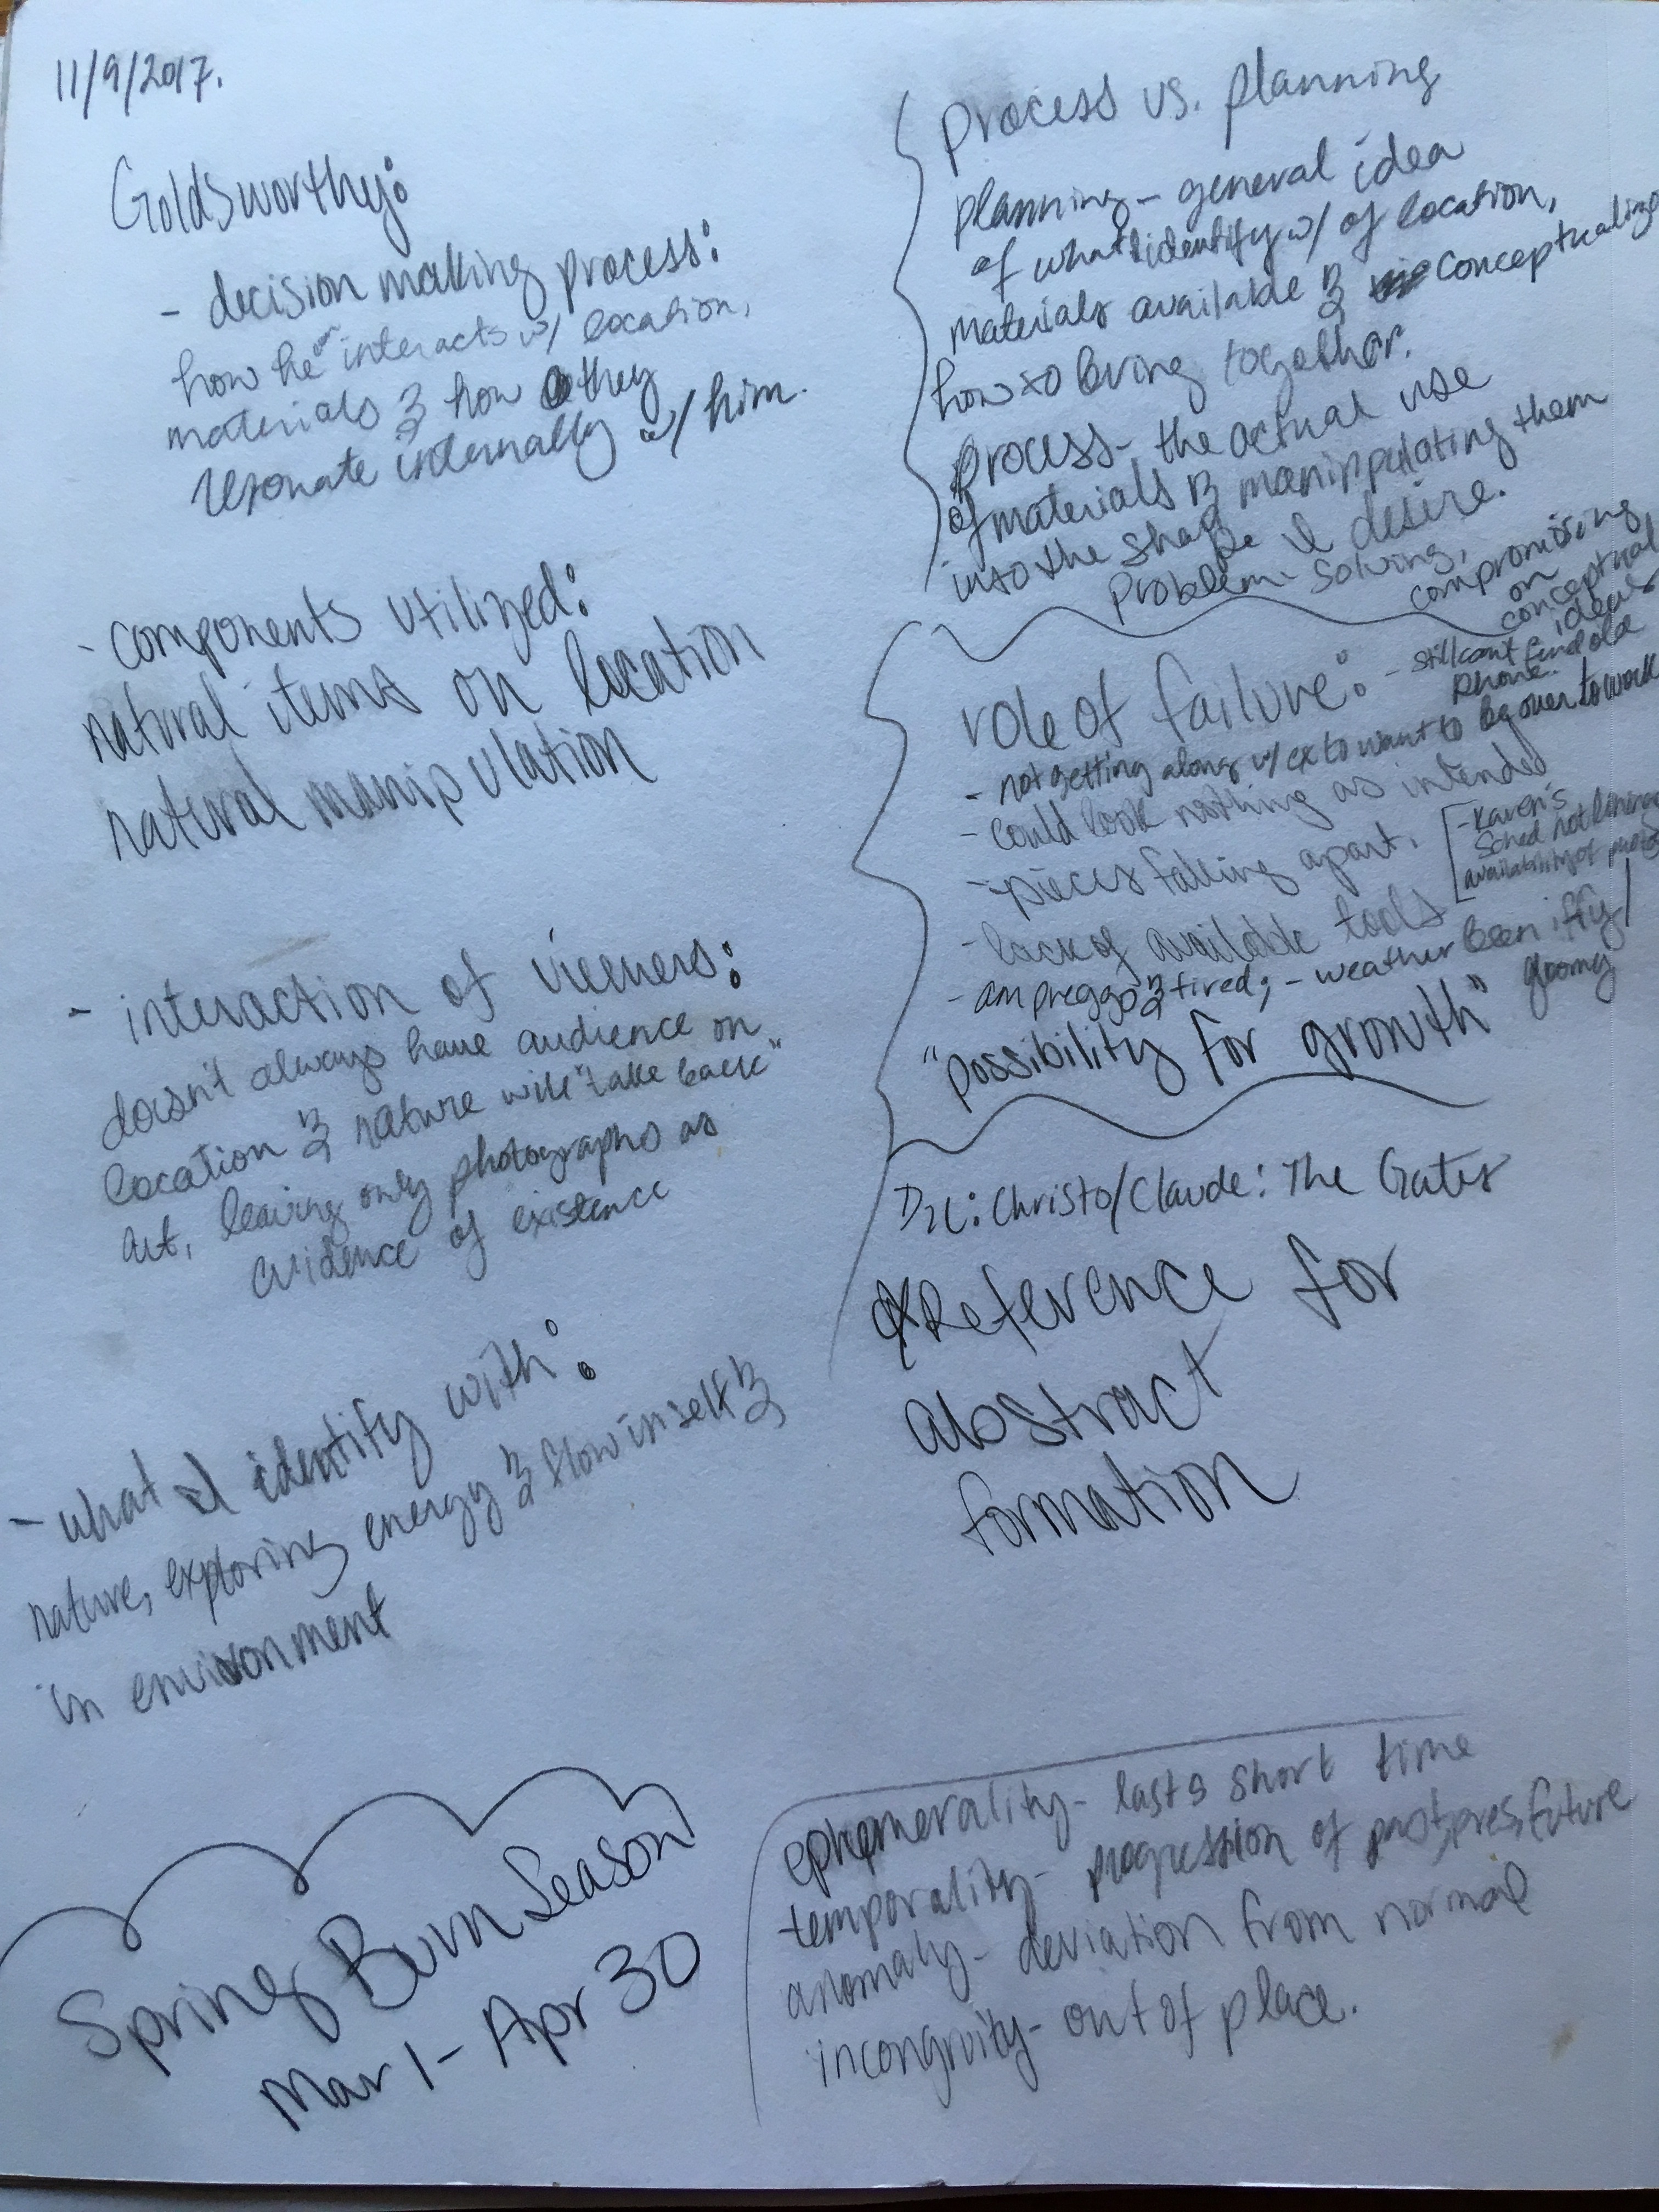 11/9/2017.
Goldsworthy:
- decision making process:
how he interacts w/ location,
materials & how they
resonate internally w/ him.
- components utilized:
natural items on location
natural manipulation
- interaction of viewers:
doesn't always have audience on
location & nature will "take back"
art, leaving only photographs as
evidence of existence
- what I identify with:
nature, exploring energy & flow in self &
in environment
Spring Burn Season
Mar 1 - Apr 30
Process vs. planning
planning - general idea
of what I identify w/ of location,
materials available & conceptualize
how to bring together.
process - the actual use
of materials & manippulating them
into the shape I desire.
problem-solving,
compromising
on
conceptual
ideas
role of failure:
- still can't find old
phone.
- not getting along w/ ex to want to be over to work
- could look nothing as intended
- pieces falling apart.
[- Karen's
sched not
availability of
- lack of available tools
- am preggo & tired; - weather been iffy/
gloomy
"possibility for growth"
Christo/Claude: The Gates
Reference for
abstract
formation
ephemerality - lasts short time
temporality - progression of past, pres, future
anomaly - deviation from normal
incongruity - out of place.